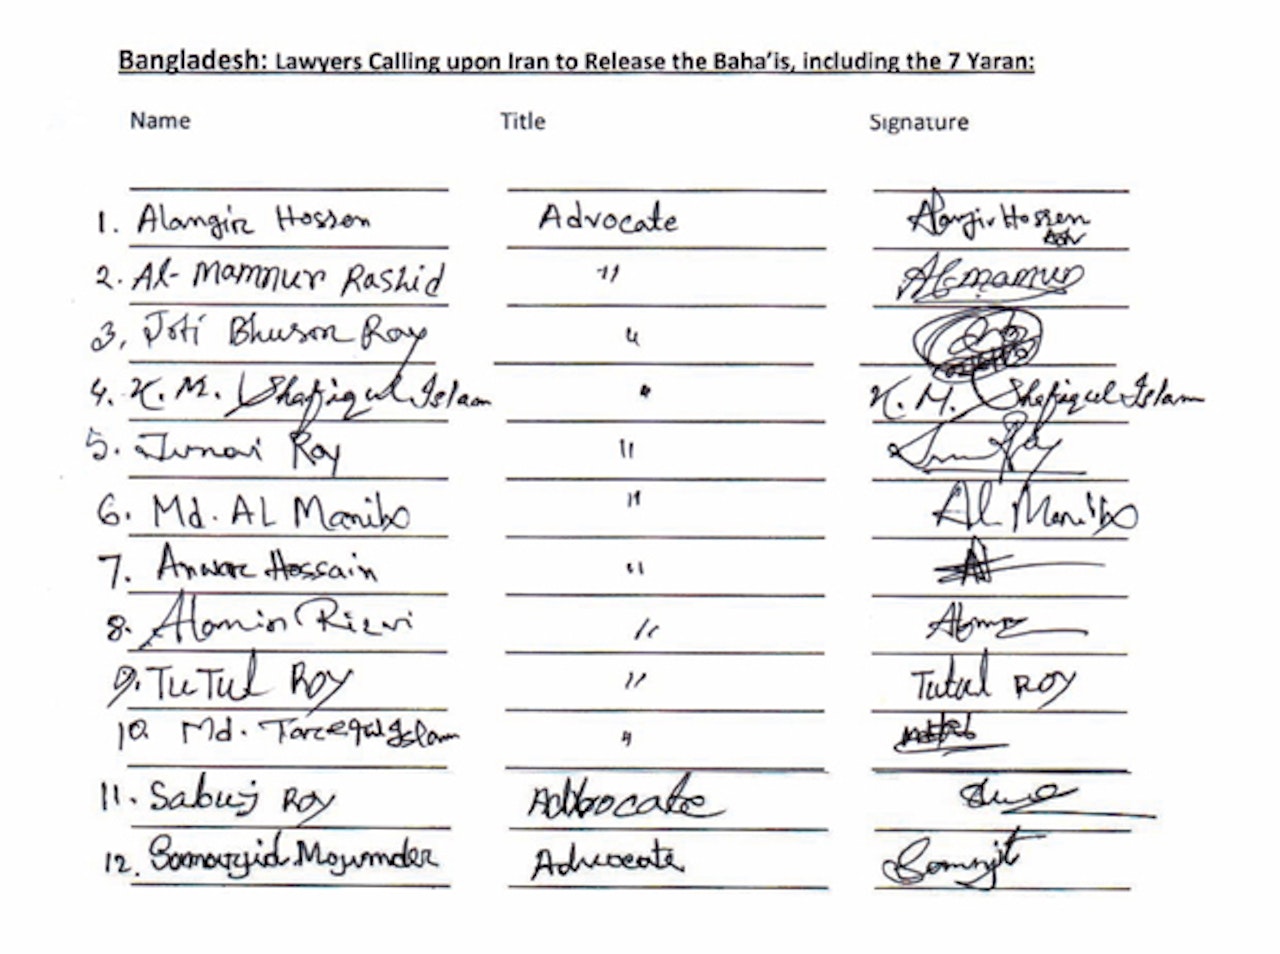 Bangladesh: Lawyers Calling upon Iran to Release the Baha'is, including the 7 Yaran:
Name Title Signature
1. Alamgir Hossen Advocate Alamgir Hossen
2. Al- Mamnur Rashid " Al-mamun
3. Joti Bhuson Roy "
4. K. M. Shafiqul Islam " K. M. Shafiqul Islam
5. Roy " Roy
6. Md. AL Manibo " Al Manibo
7. Anwar Hossain "
8. Alamin Rizvi "
9. TuTul ROY " Tutul ROY
10. Md. Tareequl Islam "
11. Sabuj Roy Advocate
12. Mojumder Advocate